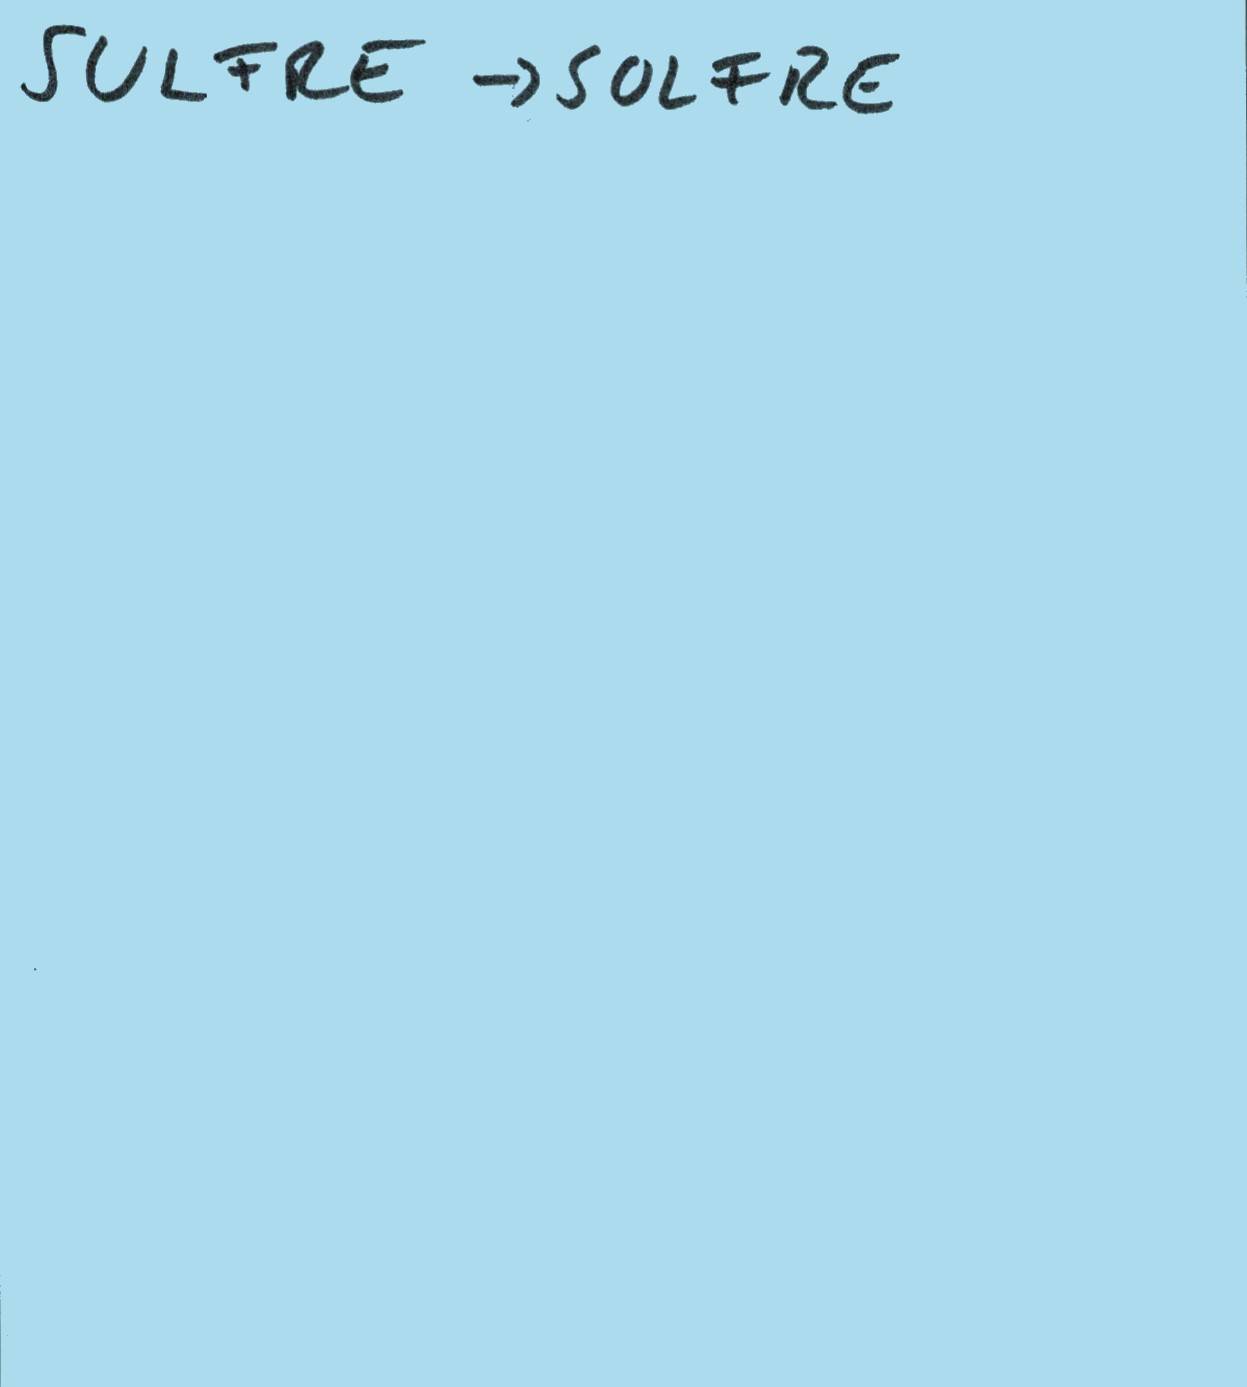 SULFRE → SOLFRE